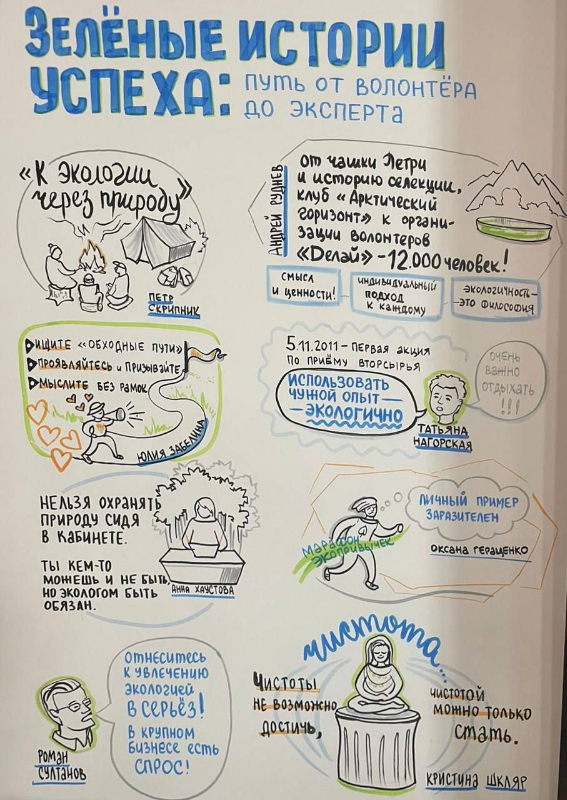 ЗЕЛЁНЫЕ ИСТОРИИ
УСПЕХА:
ПУТЬ ОТ ВОЛОНТЁРА
ДО ЭКСПЕРТА
«К ЭКОЛОГИИ
через природу»
ПЕТР
СКРИПНИК
АНДРЕЙ РУДНЕВ
от чашки Петри
и историю селекции,
клуб «Арктический
горизонт» к органи-
зации волонтеров
«Делай» - 12.000 человек!
СМЫСЛ
И ЦЕННОСТИ!
ИНДИВИДУАЛЬНЫЙ
ПОДХОД
К КАЖДОМУ
ЭКОЛОГИЧНОСТЬ-
ЭТО ФИЛОСОФИЯ
ИЩИТЕ «ОБХОДНЫЕ ПУТИ»
ПРОЯВЛЯЙТЕСЬ И ПРИЗЫВАЙТЕ
МЫСЛИТЕ БЕЗ РАМОК
ЮЛИЯ ЗАБЕЛИНА
5.11.2011 - ПЕРВАЯ АКЦИЯ
ПО ПРИЁМУ ВТОРСЫРЬЯ
ИСПОЛЬЗОВАТЬ
ЧУЖОЙ ОПЫТ-
- ЭКОЛОГИЧНО
ОЧЕНЬ
ВАЖНО
ОТДЫХАТЬ
!!!
ТАТЬЯНА
НАГОРСКАЯ
НЕЛЬЗЯ ОХРАНЯТЬ
ПРИРОДУ СИДЯ
В КАБИНЕТЕ.
ТЫ КЕМ-ТО
МОЖЕШЬ И НЕ БЫТЬ,
НО ЭКОЛОГОМ БЫТЬ
ОБЯЗАН.
АННА ХАУСТОВА
ЛИЧНЫЙ ПРИМЕР
ЗАРАЗИТЕЛЕН
МАРАФОН
ЭКОПРИВЫЧЕК
ОКСАНА ГЕРАЩЕНКО
ОТНЕСИТЕСЬ
К УВЛЕЧЕНИЮ
ЭКОЛОГИЕЙ
В СЕРЬЁЗ!
В КРУПНОМ
БИЗНЕСЕ ЕСТЬ
СПРОС!
РОМАН
СУЛТАНОВ
чистота...
ЧИСТОТЫ
НЕ ВОЗМОЖНО
ДОСТИЧЬ,
ЧИСТОТОЙ
МОЖНО ТОЛЬКО
СТАТЬ.
КРИСТИНА ШКЛЯР